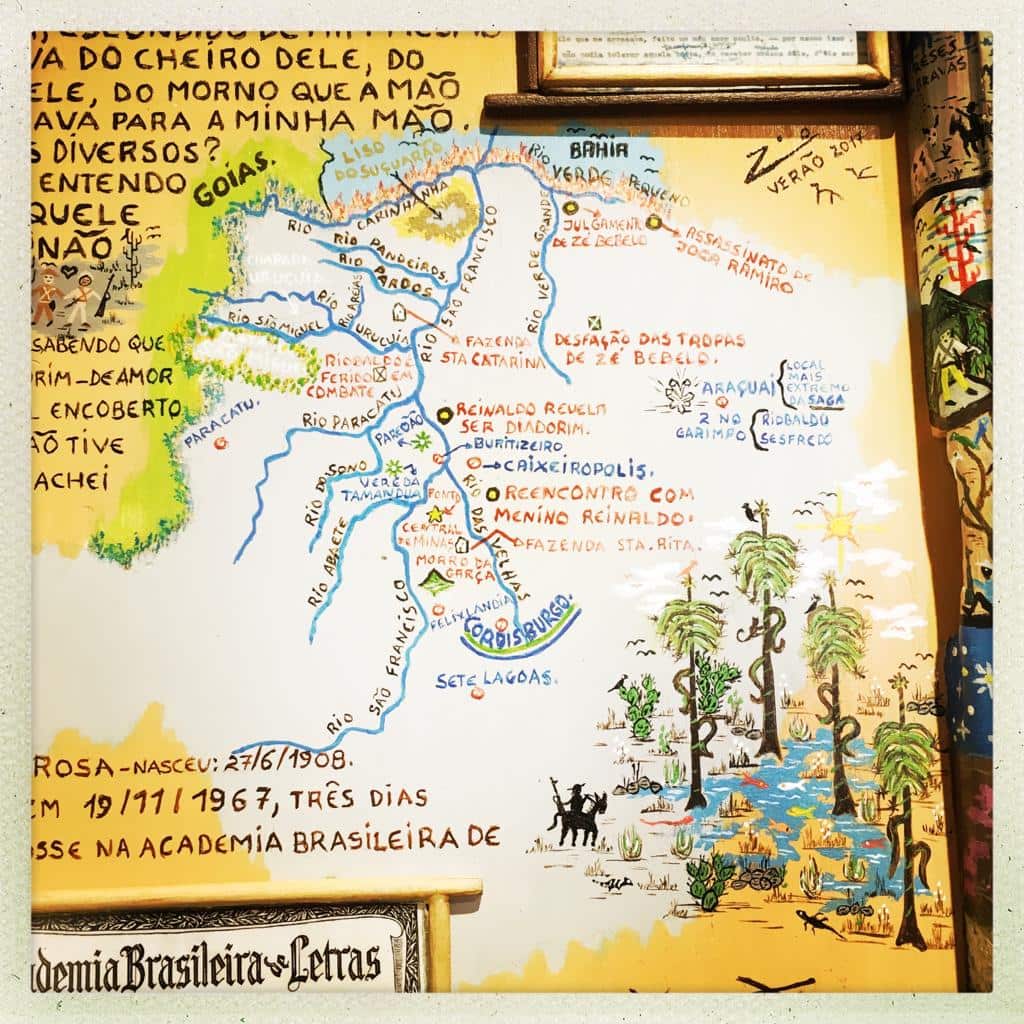 VA DO CHEIRO DELE, DO
ELE, DO MORNO QUE A MÃO
AVA PARA A MINHA MÃO.
S DIVERSOS?
ENTENDO
QUELE
NÃO
SABENDO QUE
RIM-DE AMOR
ENCOBERTO
ÃO TIVE
ACHEI
VERÃO 2017
GOIÁS.
LISO
DO SUSSUARÃO
BAHIA
RIO
VERDE PEQUENO
RIO CARINHANHA
RIO PANDEIROS
RIO PARDOS
RIO SÃO FRANCISCO
RIO VERDE GRANDE
JULGAMENT
DE ZÉ BEBELO
ASSASSINATO DE
JOCA RAMIRO
CHAPADA
URUCUIA
RIO
RIO AREIAS
URUCUIA
RIO SÃO MIGUEL
FAZENDA
STA CATARINA
DESFAÇÃO DAS TROPAS
DE ZÉ BEBELO.
RIOBALDO É
FERIDO EM
COMBATE
ARAÇUAÍ
LOCAL
MAIS
EXTREMO
DA SAGA
2 NO
GARIMPO
RIOBALDO
SESFREDO
PARACATU.
RIO PARACATU
REINALDO REVELA
SER DIADORIM.
PAREDÃO
BURITIZEIRO.
CAIXEIROPOLIS.
RIO DO SONO
VEREDA
TAMANDUÁ
PONTO
CENTRAL
DE MINAS
REENCONTRO COM
MENINO REINALDO.
FAZENDA STA. RITA.
RIO DAS VELHAS
RIO ABAETÉ
MORRO DA
GARÇA
FELIXLANDIA
CORDISBURGO.
SETE LAGOAS.
RIO SÃO FRANCISCO
ROSA-NASCEU: 27/6/1908.
EM 19/11/1967, TRÊS DIAS
OSSE NA ACADEMIA BRASILEIRA DE
ademia Brasileira de Letras